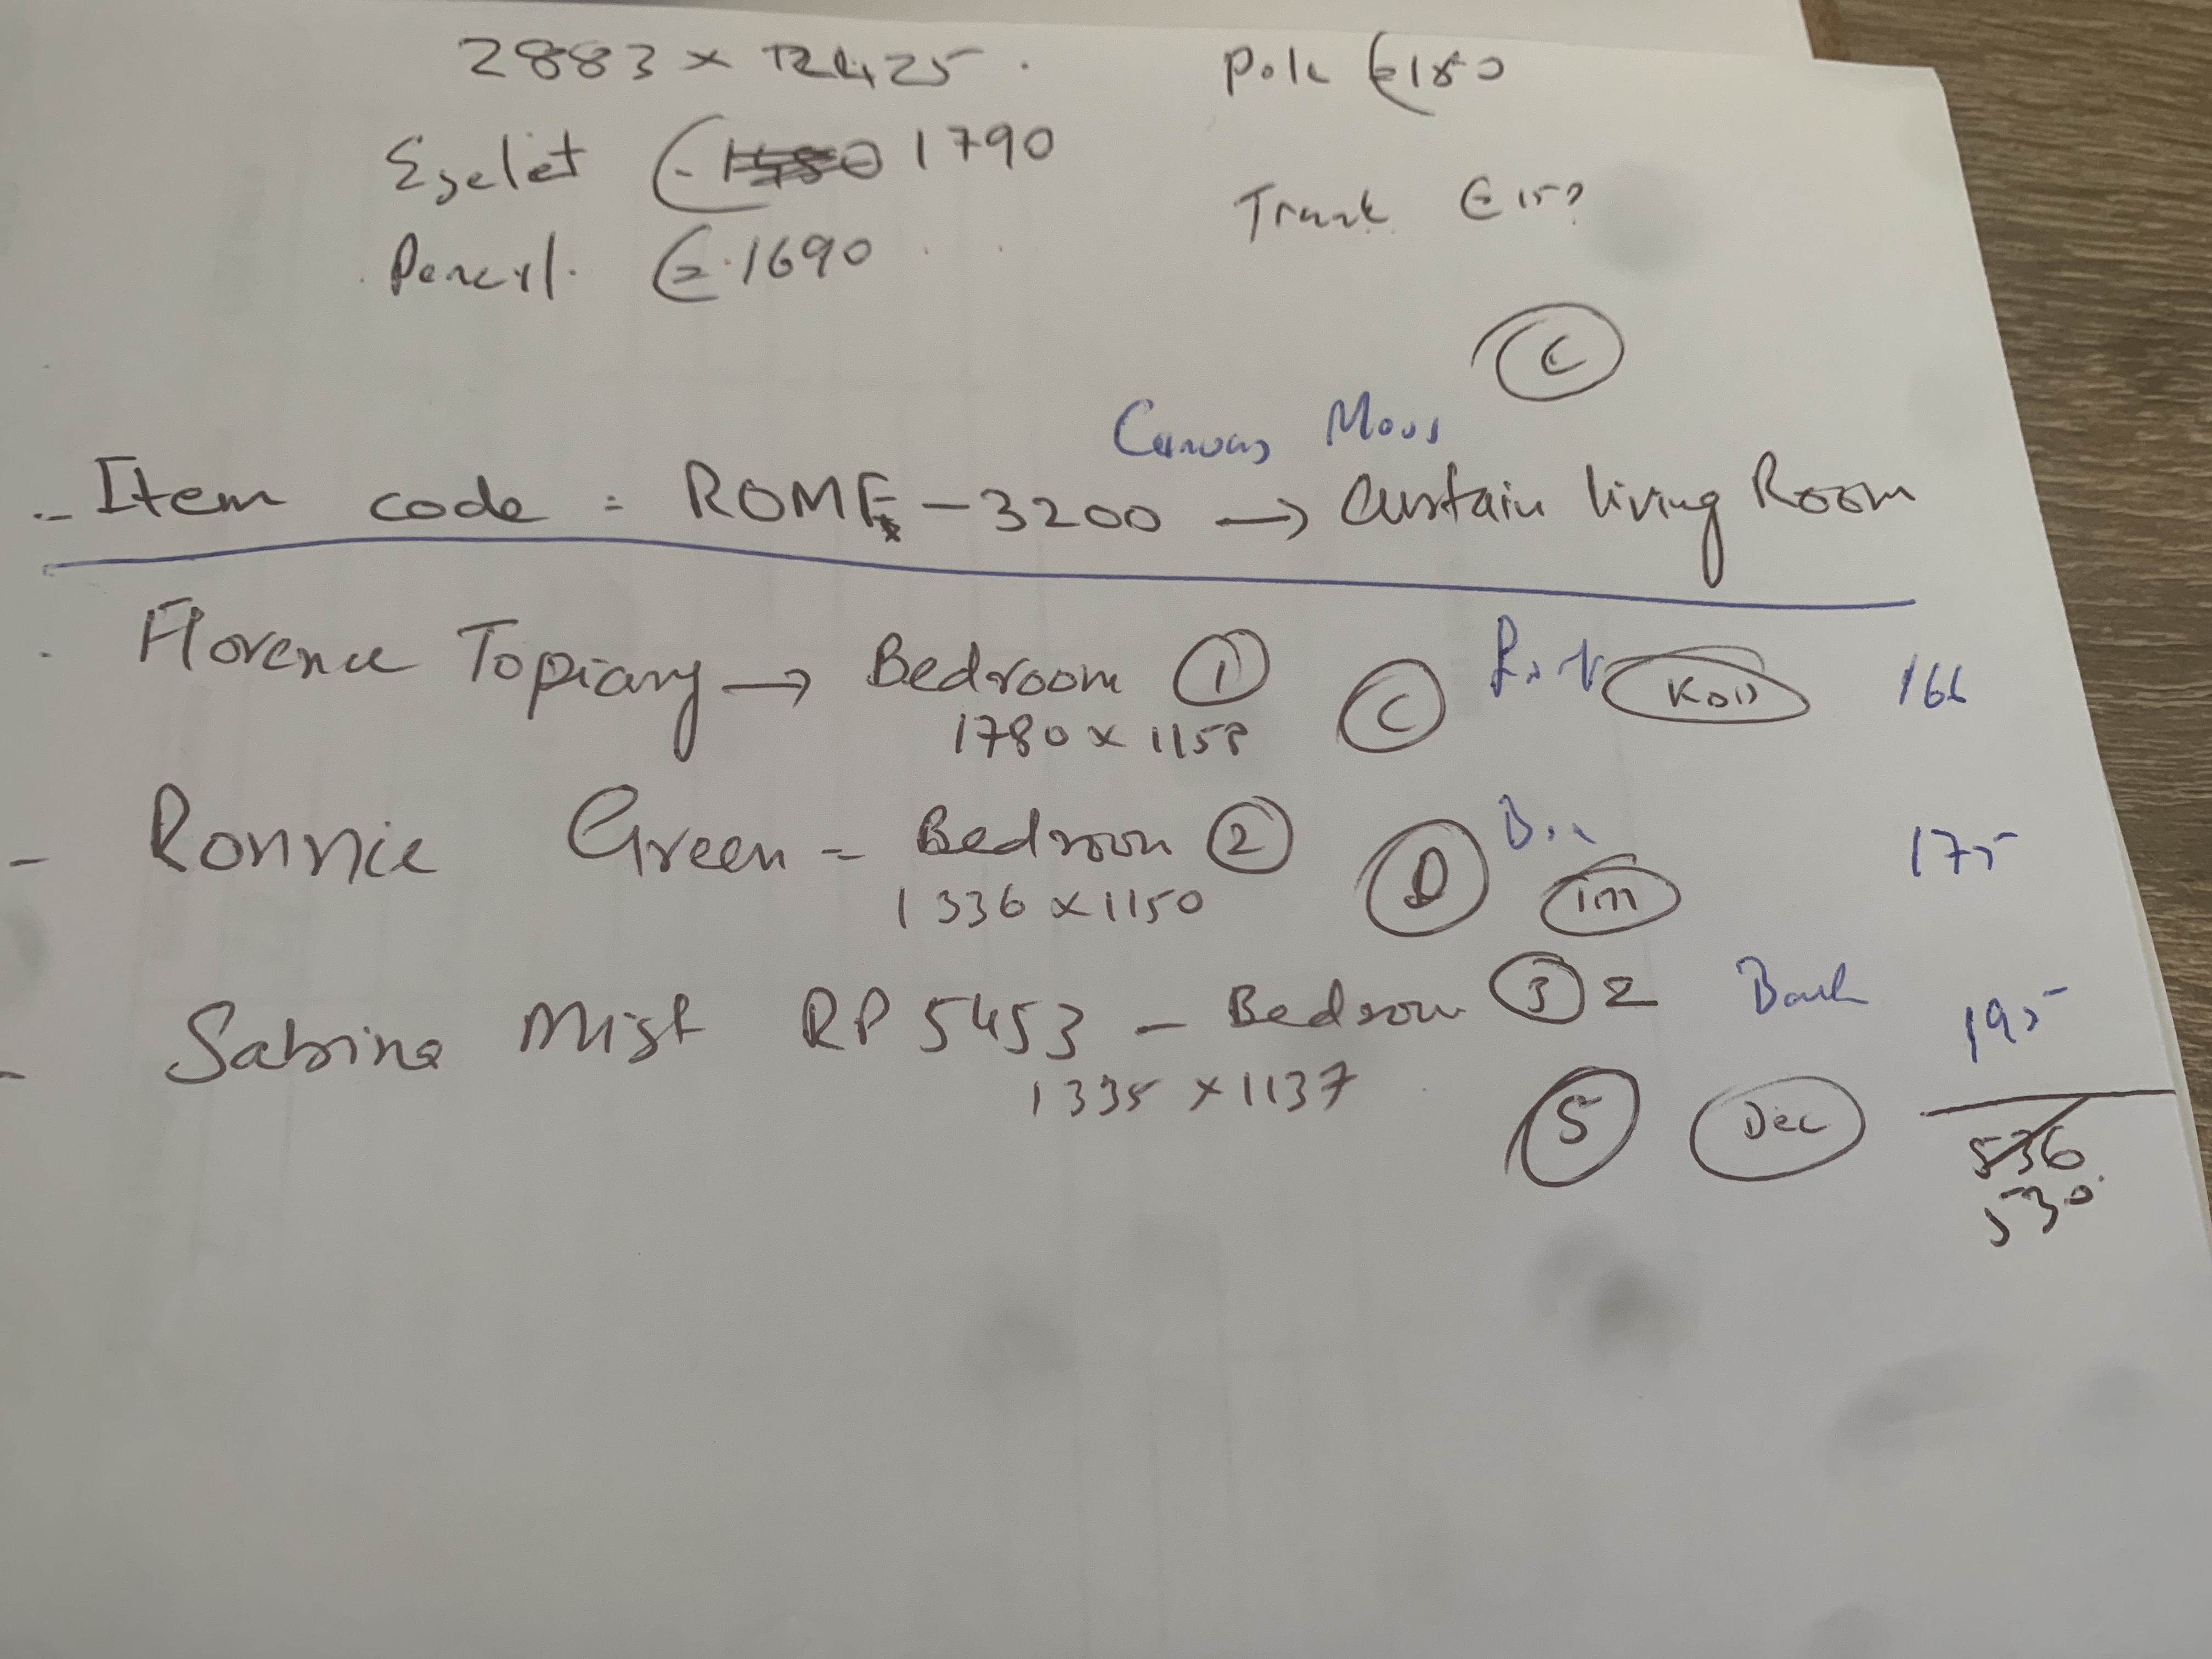 2883 x 2425 .
Pole €180
Eyelet € 1790
Track €150
Pencil. € 1690
C
Canvas Moss
- Item code : ROME - 3200 → Curtain living Room
Florence Topiary → Bedroom 1
1780 x 1158
C
166
- Ronnie Green - Bedroom 2
1336 x 1150
D
175
- Sabrina Mist RP 5453 - Bedroom 3 2
1335 x 1137
S Dec
195
536
530